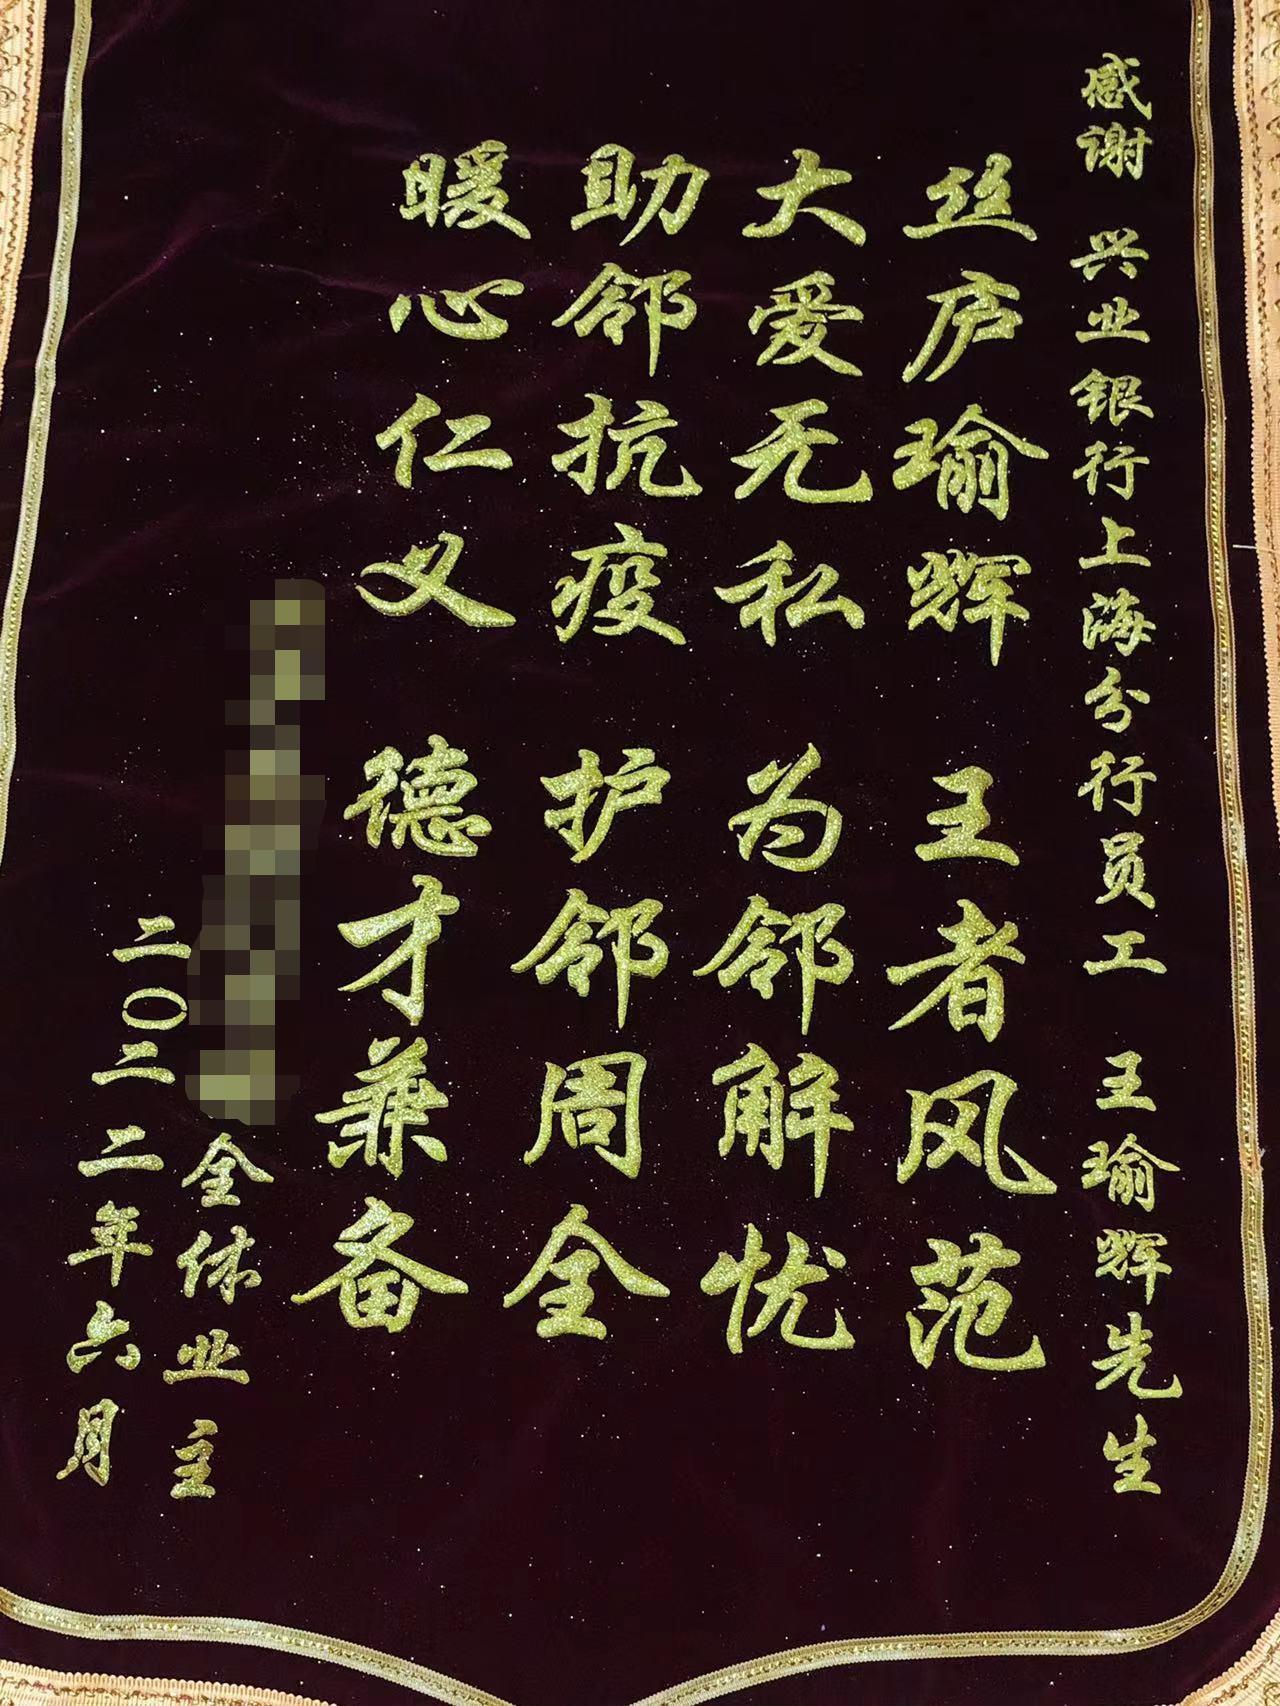 感谢 兴业银行上海分行员工 王瑜辉先生
丝庐瑜辉 王者风范
大爱无私 为邻解忧
助邻抗疫 护邻周全
暖心仁义 德才兼备
全体业主
二〇二二年六月